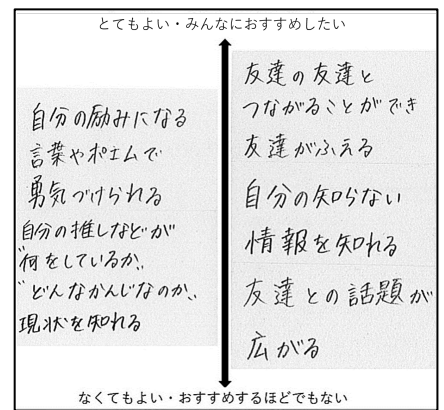 とてもよい・みんなにおすすめしたい
自分の励みになる
言葉やポエムで
勇気づけられる
自分の推しなどが
"何をしているか"
"どんなかんじなのか"
現状を知れる
友達の友達と
つながることができ
友達がふえる
自分の知らない
情報を知れる
友達との話題が
広がる
なくてもよい・おすすめするほどでもない